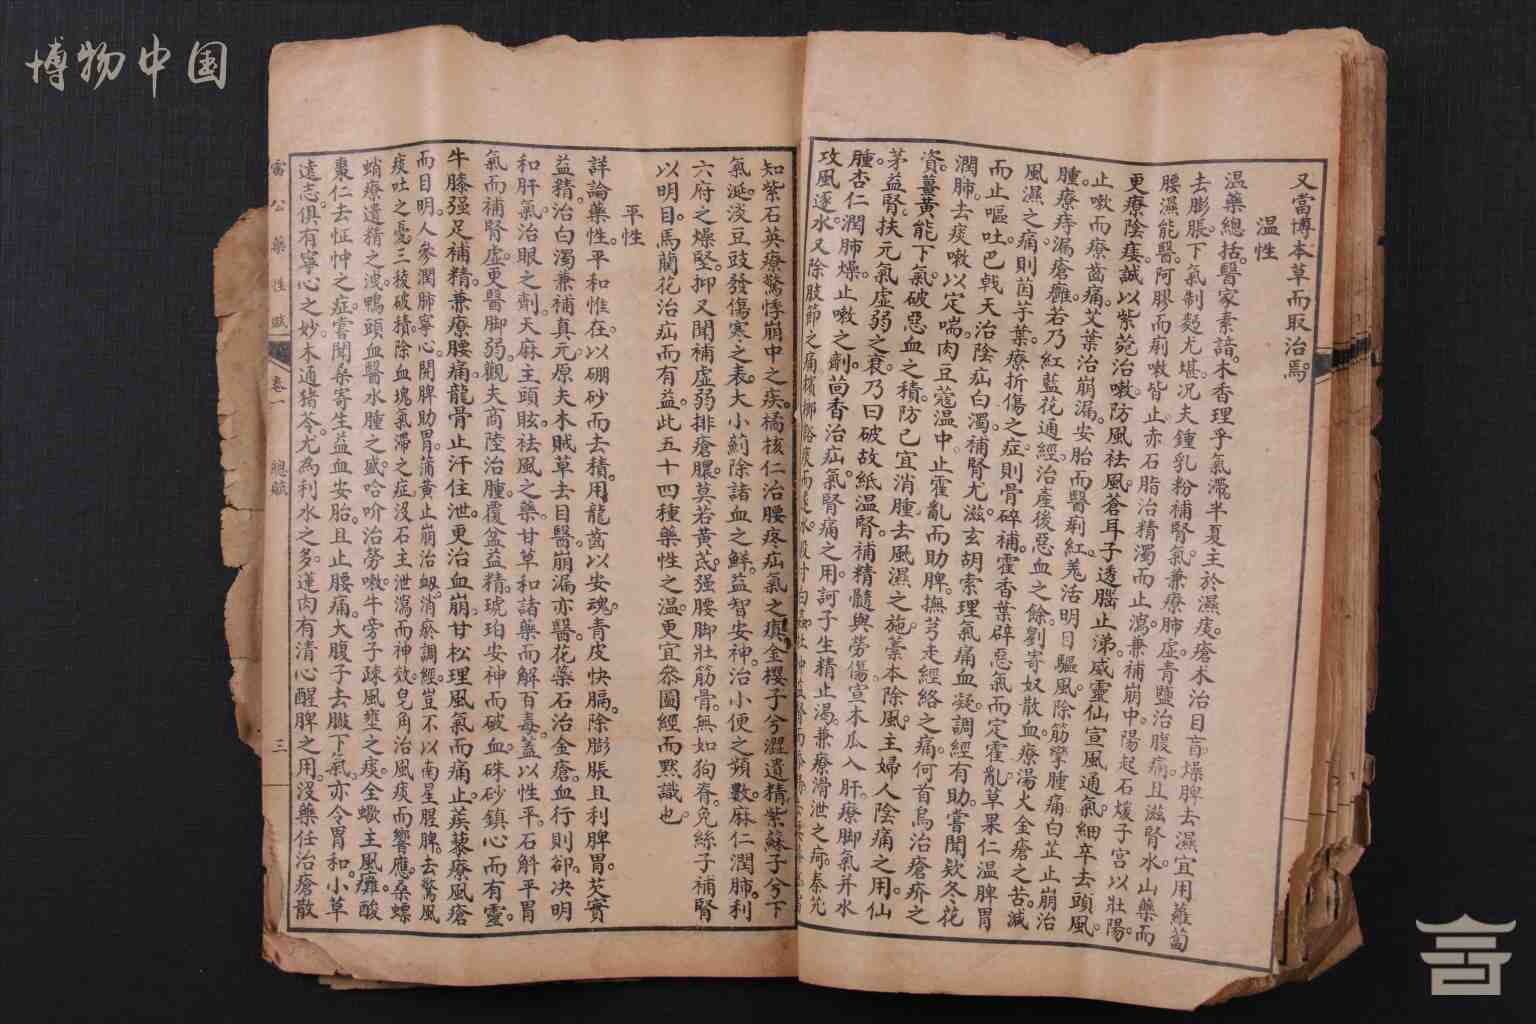 博物中国
又當博本草而取治焉
温性
温藥總括醫家素諳木香理乎氣滯半夏主於濕痰瘡术治目盲燥脾去濕宜用蘿蔔
去膨脹下氣制麪尤堪况夫鍾乳粉補腎氣兼療肺虛青鹽治腹痛且滋腎水山藥而
腰濕能醫阿膠而痢嗽皆止赤石脂治精濁而止瀉兼補崩中陽起石煖子宮以壯陽
更療陰痿誠以紫菀治嗽防風祛風蒼耳子透腦止涕威靈仙宣風通氣細辛去頭風
止嗽而療齒痛艾葉治崩漏安胎而醫痢紅羌活明目驅風除筋攣腫痛白芷止崩治
腫療痔漏瘡癰若乃紅藍花通經治產後惡血之餘劉寄奴散血療湯火金瘡之苦減
風濕之痛則茵芋葉療折傷之症則骨碎補藿香葉辟惡氣而定霍亂草果仁温脾胃
而止嘔吐巴戟天治陰疝白濁補腎尤滋玄胡索理氣痛血凝調經有助嘗聞欵冬花
潤肺去痰嗽以定喘肉豆蔻温中止霍亂而助脾撫芎走經絡之痛何首烏治瘡疥之
資薑黃能下氣破惡血之積防己宜消腫去風濕之施藁本除風主婦人陰痛之用仙
茅益腎扶元氣虛弱之衰乃曰破故紙温腎補精髓與勞傷宣木瓜入肝療脚氣并水
腫杏仁潤肺燥止嗽之劑茴香治疝氣腎痛之用訶子生精止渴兼療滑泄之疴秦艽
攻風逐水又除肢節之痛檳榔豁痰而逐水
知紫石英療驚悸崩中之疾橘核仁治腰疼疝氣之瘨金櫻子兮澀遺精紫蘇子兮下
氣涎淡豆豉發傷寒之表大小薊除諸血之鮮益智安神治小便之頻數麻仁潤肺利
六府之燥堅抑又聞補虛弱排瘡膿莫若黃芪强腰脚壯筋骨無如狗脊兔絲子補腎
以明目馬藺花治疝而有益此五十四種藥性之温更宜參圖經而默識也
平性
詳論藥性平和惟在以硼砂而去積用龍齒以安魂青皮快膈除膨脹且利脾胃芡實
益精治白濁兼補真元原夫木賊草去目醫崩漏亦醫花藥石治金瘡血行則卻决明
和肝氣治眼之劑天麻主頭眩祛風之藥甘草和諸藥而解百毒蓋以性平石斛平胃
氣而補腎虛更醫脚弱觀夫商陸治腫覆盆益精琥珀安神而破血硃砂鎮心而有靈
牛膝强足補精兼療腰痛龍骨止汗住泄更治血崩甘松理風氣而痛止蒺藜療風瘡
而目明人參潤肺寧心開脾助胃蒲黃止崩治衄消瘀調經豈不以南星醒脾去驚風
痰吐之憂三稜破積除血塊氣滯之症沒石主泄瀉而神效皂角治風痰而響應桑螵
蛸療遺精之洩鴨頭血醫水腫之盛哈吤治勞嗽牛旁子疎風壅之痰全蠍主風癱酸
棗仁去怔忡之症嘗聞桑寄生益血安胎且止腰痛大腹子去臌下氣亦令胃和小草
遠志俱有寧心之妙木通猪苓尤為利水之多蓮肉有清心醒脾之用沒藥任治瘡散
雷公藥性賦 卷一 總賦 三